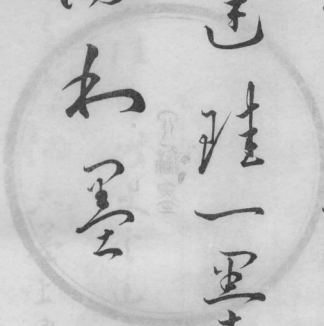 廷珪一墨
和墨